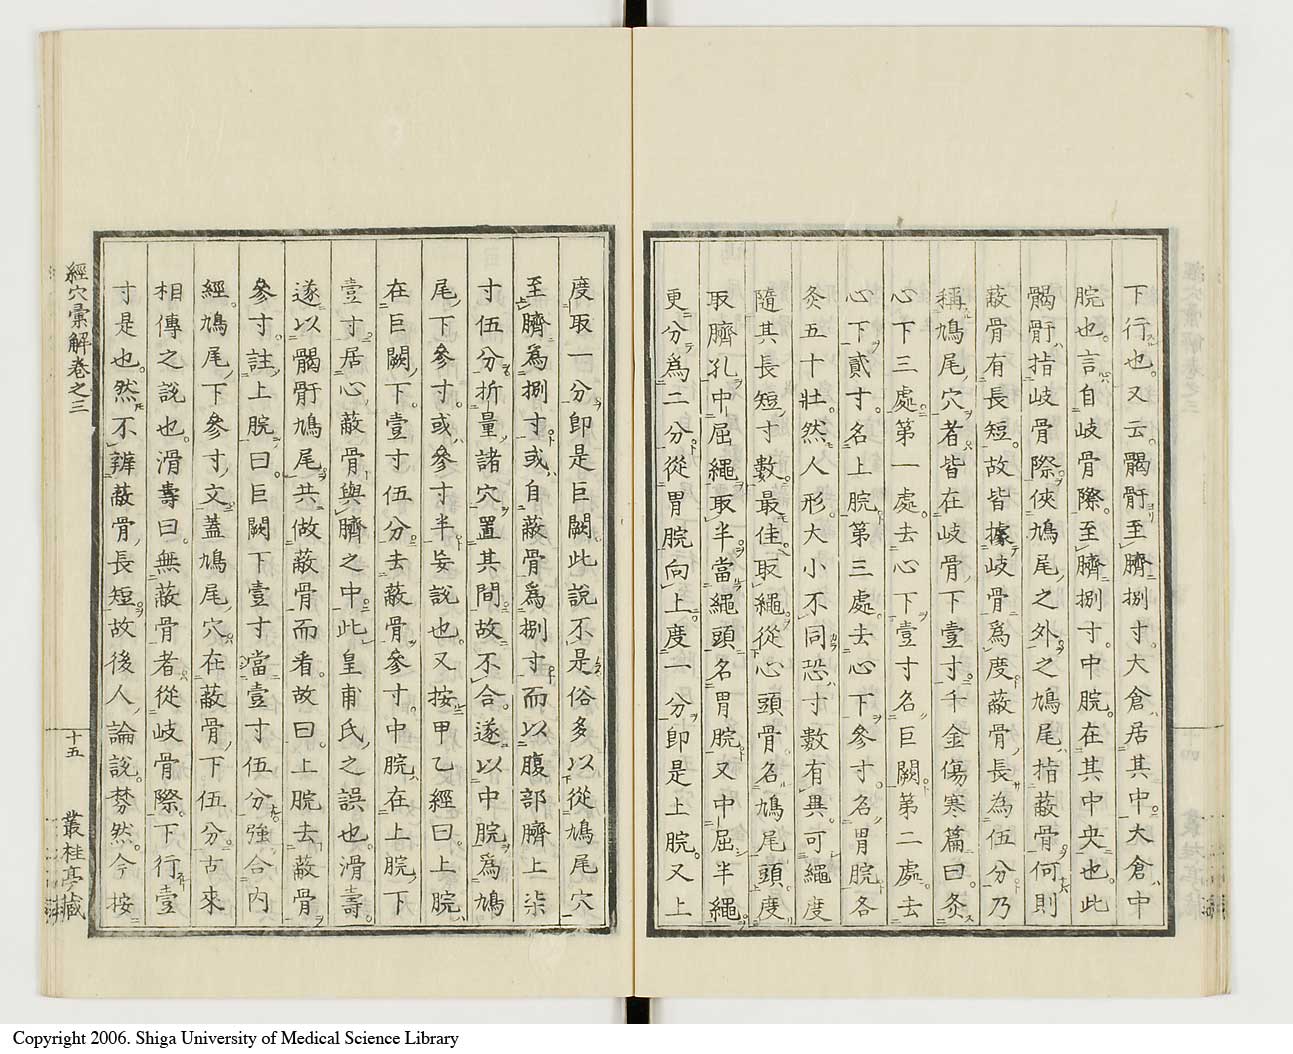 下行也。又云。𩩲骬至臍捌寸。大倉居其中。大倉中
脘也。言自岐骨際。至臍捌寸。中脘。在其中央也。此
𩩲骬指岐骨際。俠鳩尾之外。之鳩尾。指蔽骨。何則
蔽骨有長短。故皆據岐骨爲度。蔽骨長為伍分。乃
稱鳩尾穴者。皆在岐骨下壹寸。千金傷寒篇曰。灸
心下三處。第一處。去心下壹寸。名巨闕。第二處。去
心下貳寸。名上脘。第三處。去心下參寸。名胃脘。各
灸五十壯。然人形大小不同。恐寸數有異。可繩度
隨其長短寸數。最佳。取繩。從心頭骨名鳩尾頭。度
取臍孔。中屈繩取半。當繩頭名胃脘。又中屈半繩。
更分爲二分。從胃脘向上度一分。即是上脘。又上
度取一分。即是巨闕。此說不是。俗多以從鳩尾穴
至臍爲捌寸。或自蔽骨爲捌寸。而以腹部臍上柒
寸伍分。折量諸穴置其間。故不合。遂以中脘爲鳩
尾下參寸。或參寸半。妄說也。又按甲乙經曰。上脘
在巨闕下壹寸伍分。去蔽骨參寸。中脘在上脘下
壹寸。居心蔽骨與臍之中。此皇甫氏之誤也。滑壽
遂以𩩲骬鳩尾。共做蔽骨而看。故曰。上脘去蔽骨
參寸。註上脘曰。巨闕下壹寸。當壹寸伍分強。合內
經。鳩尾下參寸文。蓋鳩尾穴。在蔽骨下伍分。古來
相傳之說也。滑壽曰。無蔽骨者。從岐骨際。下行壹
寸是也。然不辨蔽骨長短。故後人論說棼然。今按
經穴彙解卷之三
十五
叢桂亭藏
Copyright 2006. Shiga University of Medical Science Library